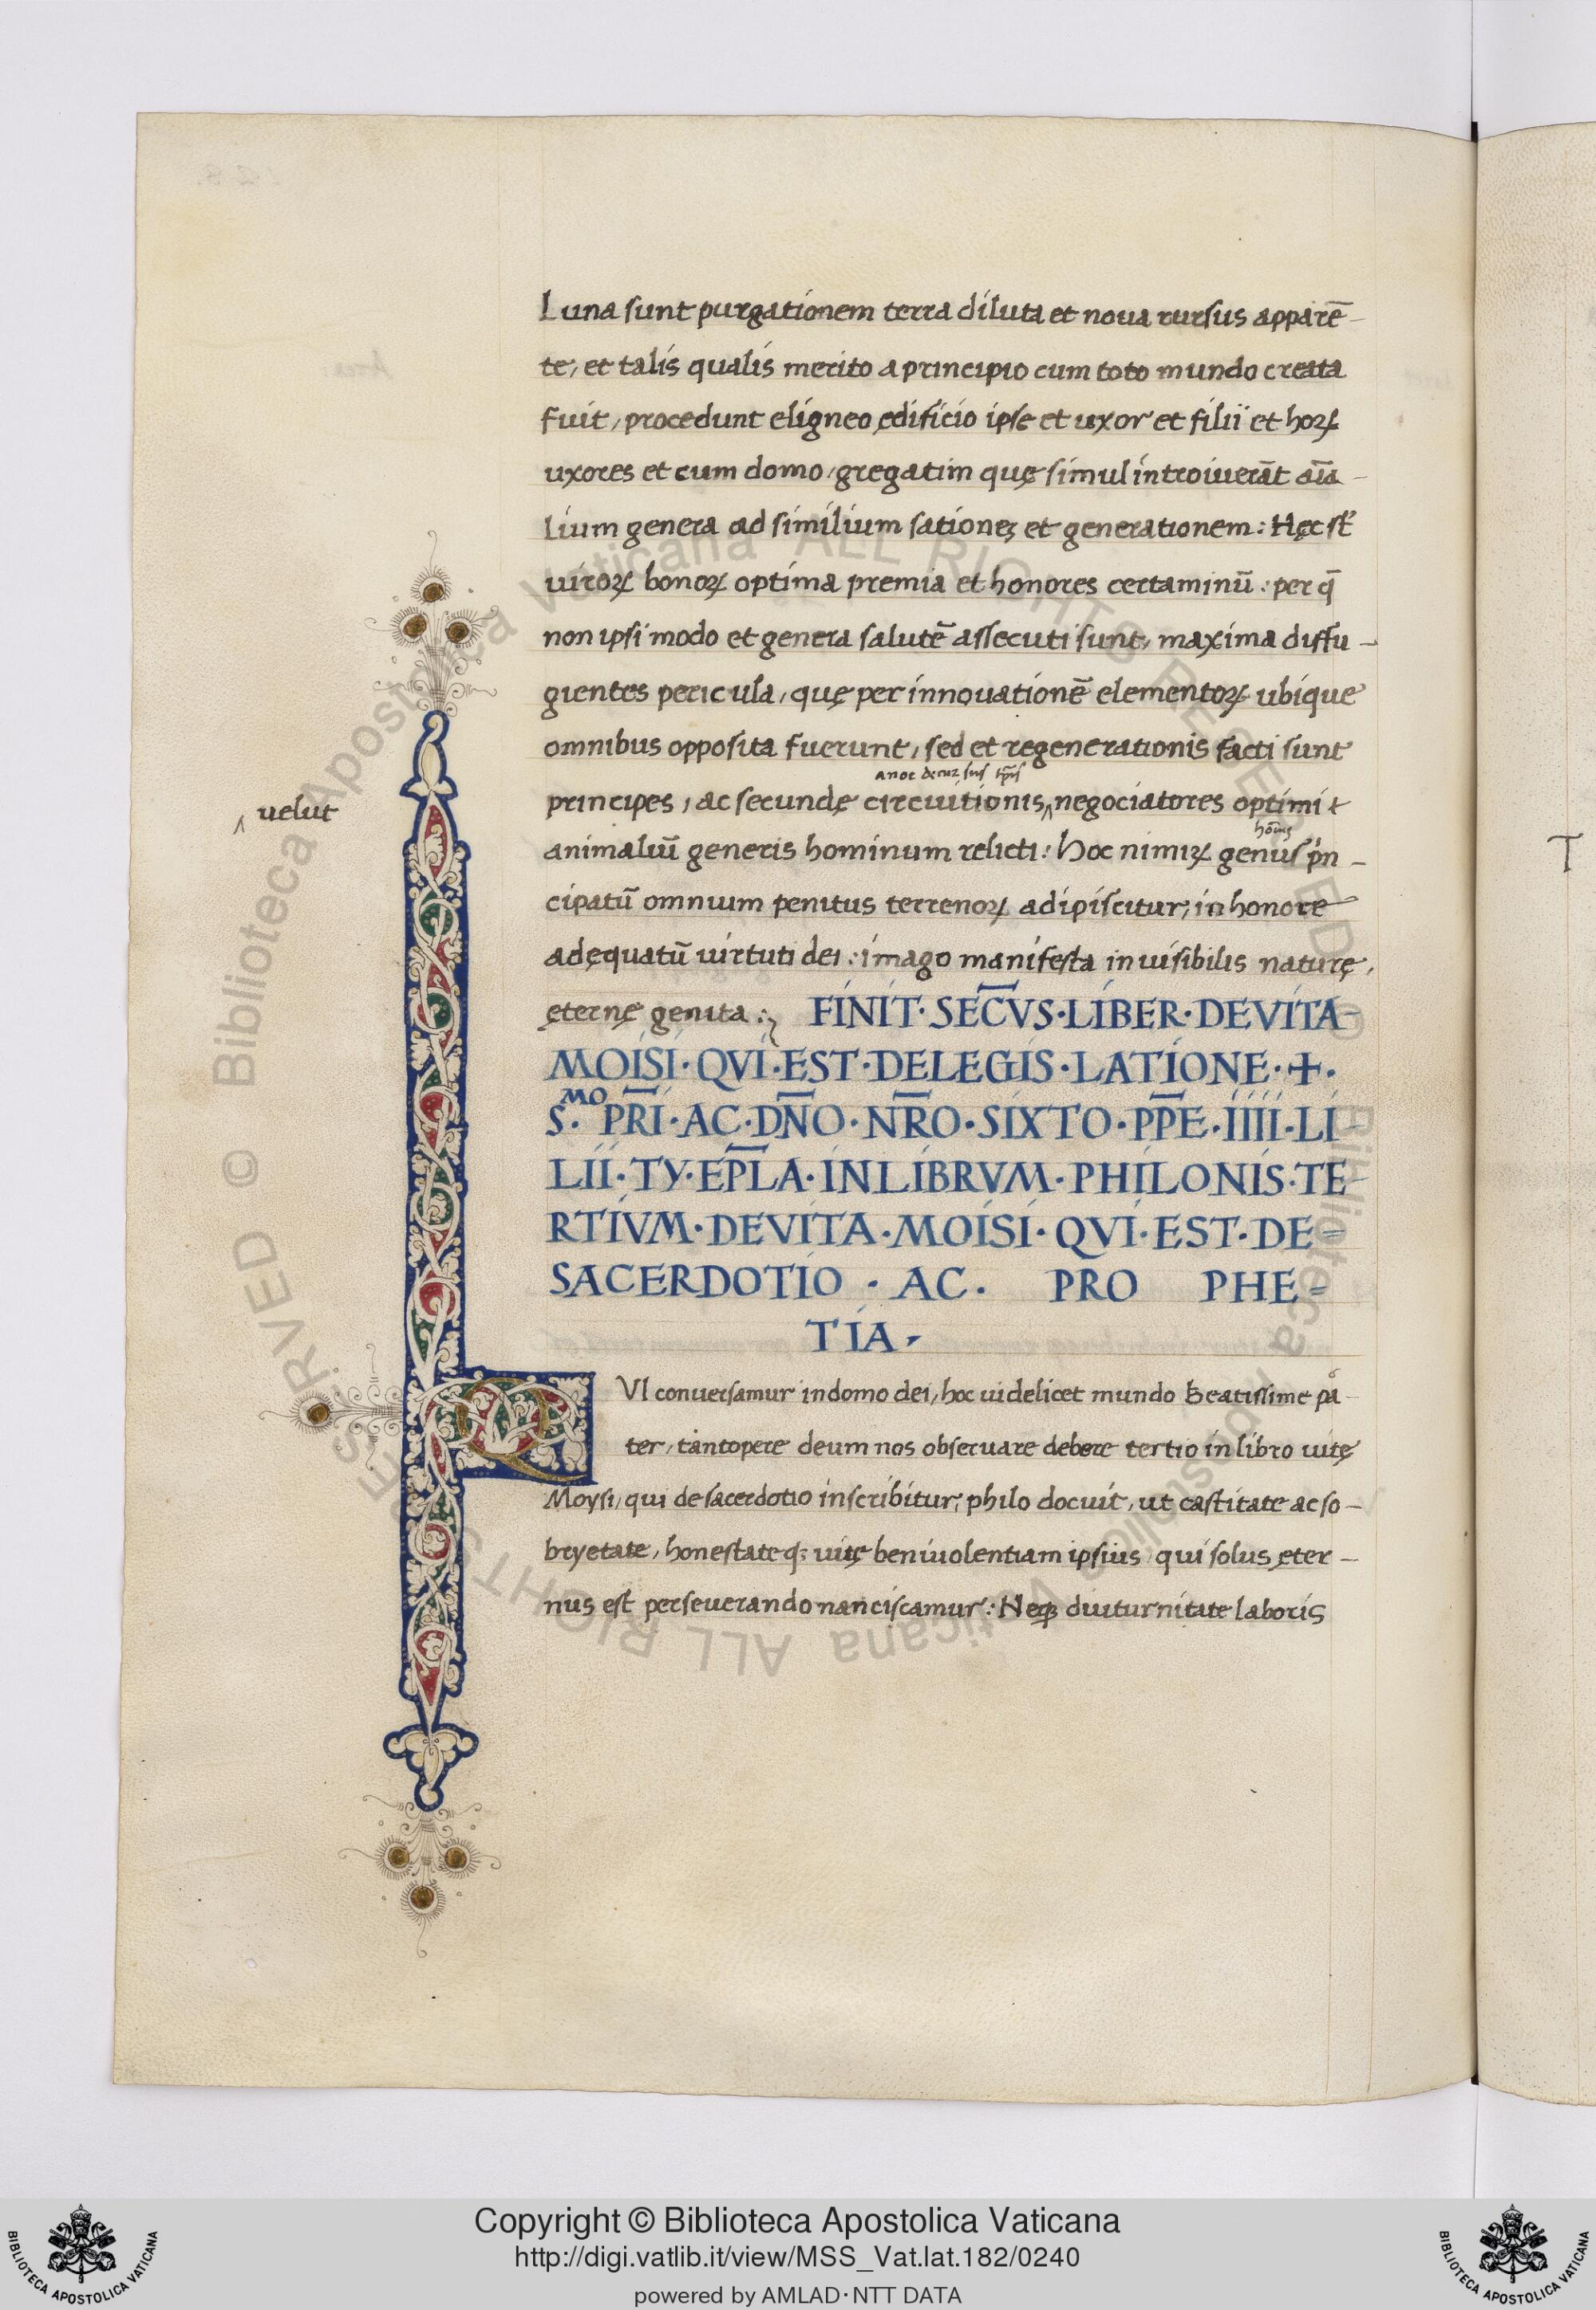 Luna sunt purgationem terra diluta et noua rursus apparē-
te, et talis qualis merito a principio cum toto mundo creata
fuit, procedunt e ligneo ędificio ipse et uxor et filii et hoꝝ
uxores et cum domo, gregatim quę simul introiuerāt aīa-
lium genera ad similium sationeꝫ et generationem: Hęc st̄
uiroꝝ bonoꝝ optima premia et honores certaminū: per q̄
non ipsi modo et genera salutē assecuti sunt, maxima diffu-
gientes pericula, quę per innouationē elementoꝝ ubique
omnibus opposita fuerunt, sed et regenerationis facti sunt
principes, ac secundę circuitionis, negociatores optimi
velut
animaliū generis hominum relicti: Hoc nimiꝝ genus
hoīus
cipatū omnium penitus terrenoꝝ adipiscitur, in honore
adęquatū uirtuti dei: imago manifesta inuisibilis naturę,
ęternę genita: FINIT· SEC̄VS·LIBER·DE VITA-
MOISI· QVI·EST·DE LEGIS·LATIONE·+·
S·MO PR̄I·AC·DN̄O·NR̄O·SIXTO·PP̄E·IIII·LI-
LII·TY·EP̄LA·IN LIBRVM·PHILONIS·TE-
RTIVM·DE VITA·MOISI·QVI·EST·DE=
SACERDOTIO · AC· PRO PHE=
TIA·
QVI conuersamur in domo dei, hoc uidelicet mundo Beatissime pa-
ter, tantopere deum nos obseruare debere tertio in libro uitę
Moysi, qui de sacerdotio inscribitur, philo docuit, ut castitate ac so-
bryetate, honestateq; uitę beniuolentiam ipsius qui solus ęter-
nus est perseuerando nanciscamur: Neqȝ diuturnitate laboris
T
Copyright © Biblioteca Apostolica Vaticana
http://digi.vatlib.it/view/MSS_Vat.lat.182/0240
powered by AMLAD·NTT DATA
BIBLIOTECA APOSTOLICA VATICANA
BIBLIOTECA APOSTOLICA VATICANA
© Biblioteca Apostolica Vaticana ALL RIGHTS RESERVED
© Biblioteca Apostolica Vaticana ALL RIGHTS RESERVED